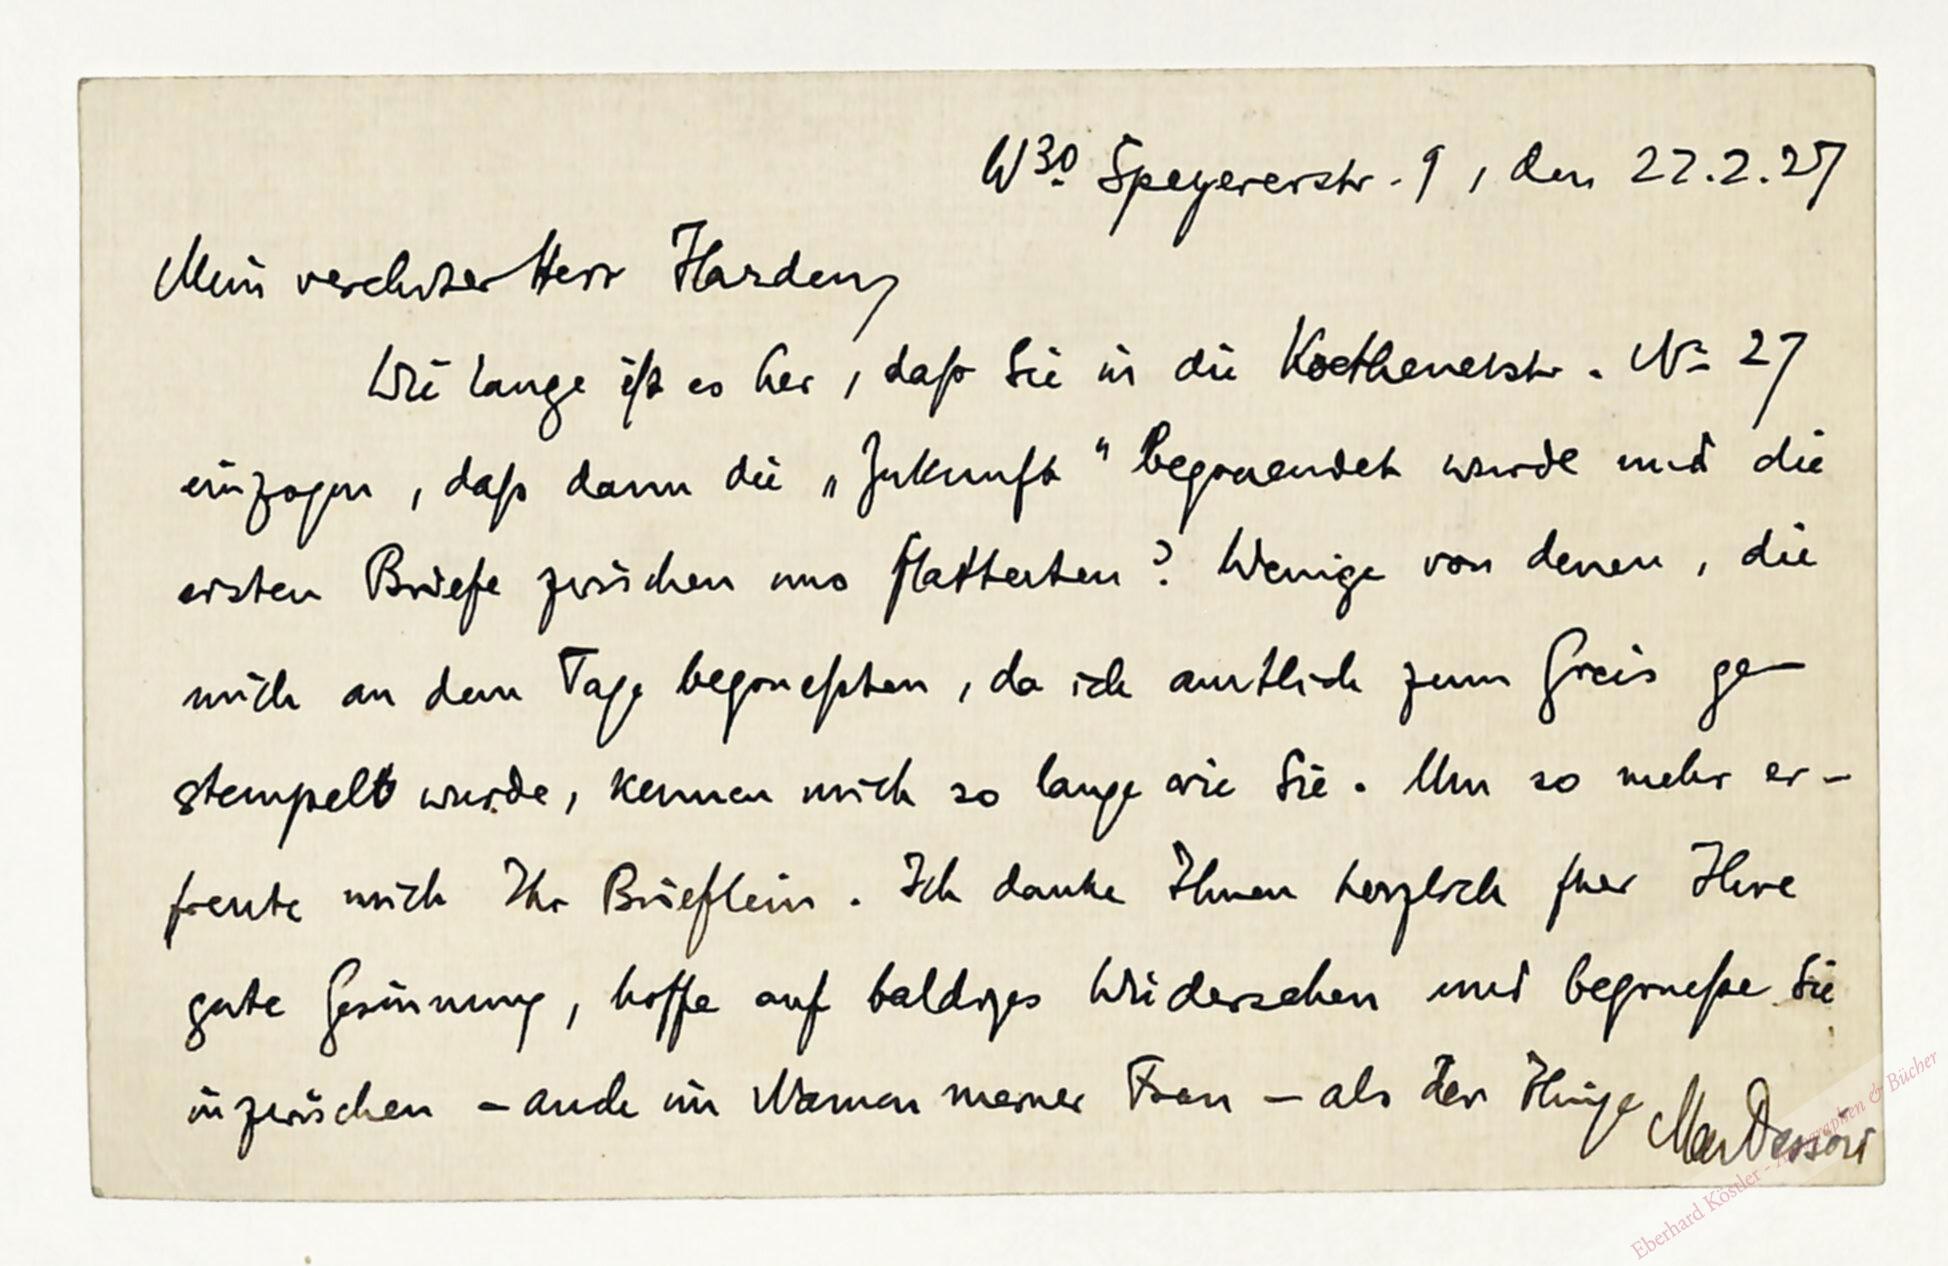 W 30 Speyererstr. 9, den 22.2.27
Mein verehrter Herr Harden,
Wie lange ist es her, daß Sie in die Koethenerstr. No 27
einzogen, daß dann die „Zukunft“ begruendet wurde und die
ersten Briefe zwischen uns flatterten? Wenige von denen, die
mich an dem Tage begrueßten, da ich amtlich zum Greis ge-
stempelt wurde, kennen mich so lange wie Sie. Um so mehr er-
freute mich Ihr Brieflein. Ich danke Ihnen herzlich fuer Ihre
gute Gesinnung, hoffe auf baldiges Wiedersehen und begrueße Sie
inzwischen – auch im Namen meiner Frau – als der Ihrige
Max Dessoir
Eberhard Köstler - Autographen & Bücher